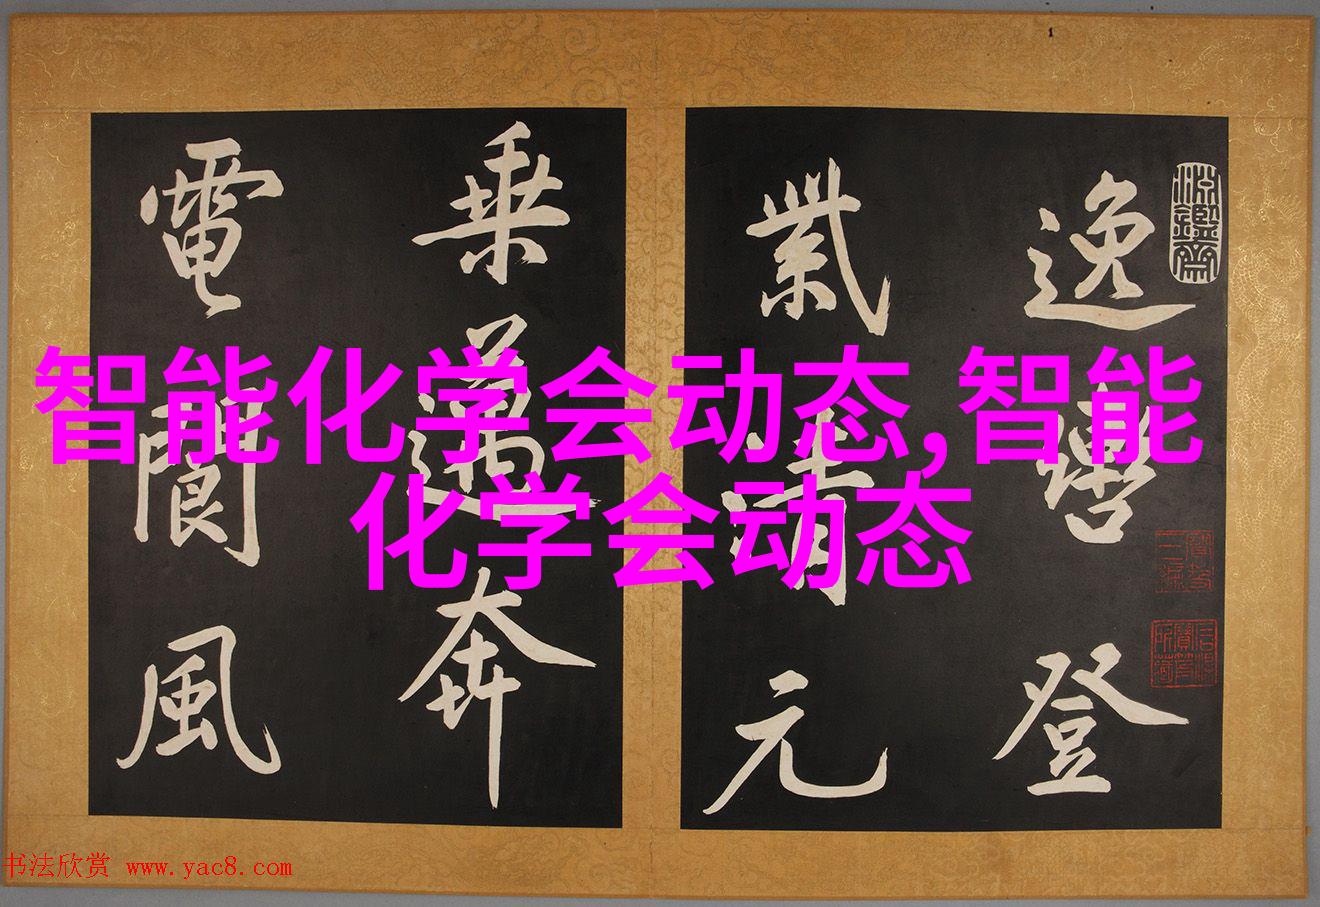 逸轡登
紫清元
乘邁奔
電閬風
智能化学会动态,智能
化学会动态
书法欣赏 www.yac8.com